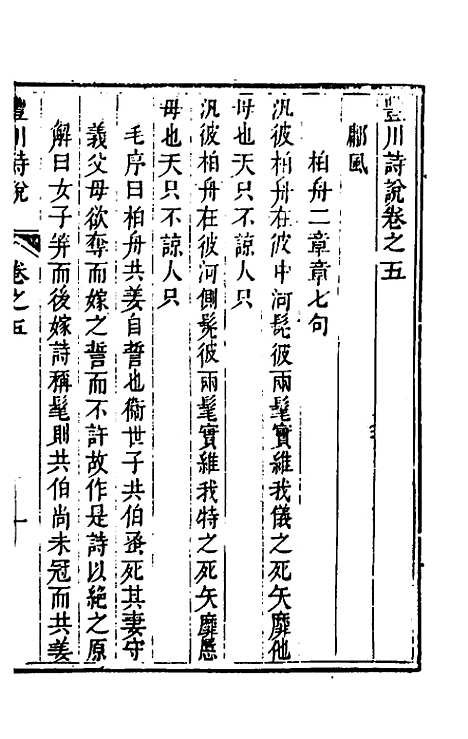 豐川詩說卷之五
鄘風
柏舟二章章七句
汎彼柏舟在彼中河髧彼兩髦實維我儀之死矢靡他
母也天只不諒人只
汎彼柏舟在彼河側髧彼兩髦實維我特之死矢靡慝
母也天只不諒人只
毛序曰柏舟共姜自誓也衞世子共伯蚤死其妻守
義父母欲奪而嫁之誓而不許故作是詩以絶之原
解曰女子笄而後嫁詩稱髦則共伯尚未冠而共姜
豐川詩說
卷之五
一